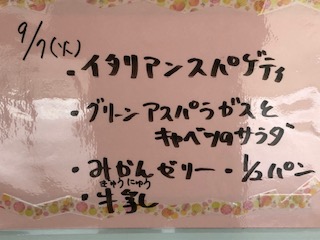 9/7(火)
・イタリアンスパゲティ
・グリーンアスパラガスと
キャベツのサラダ
・みかんゼリー・1/2パン
ぎゅうにゅう
・牛乳